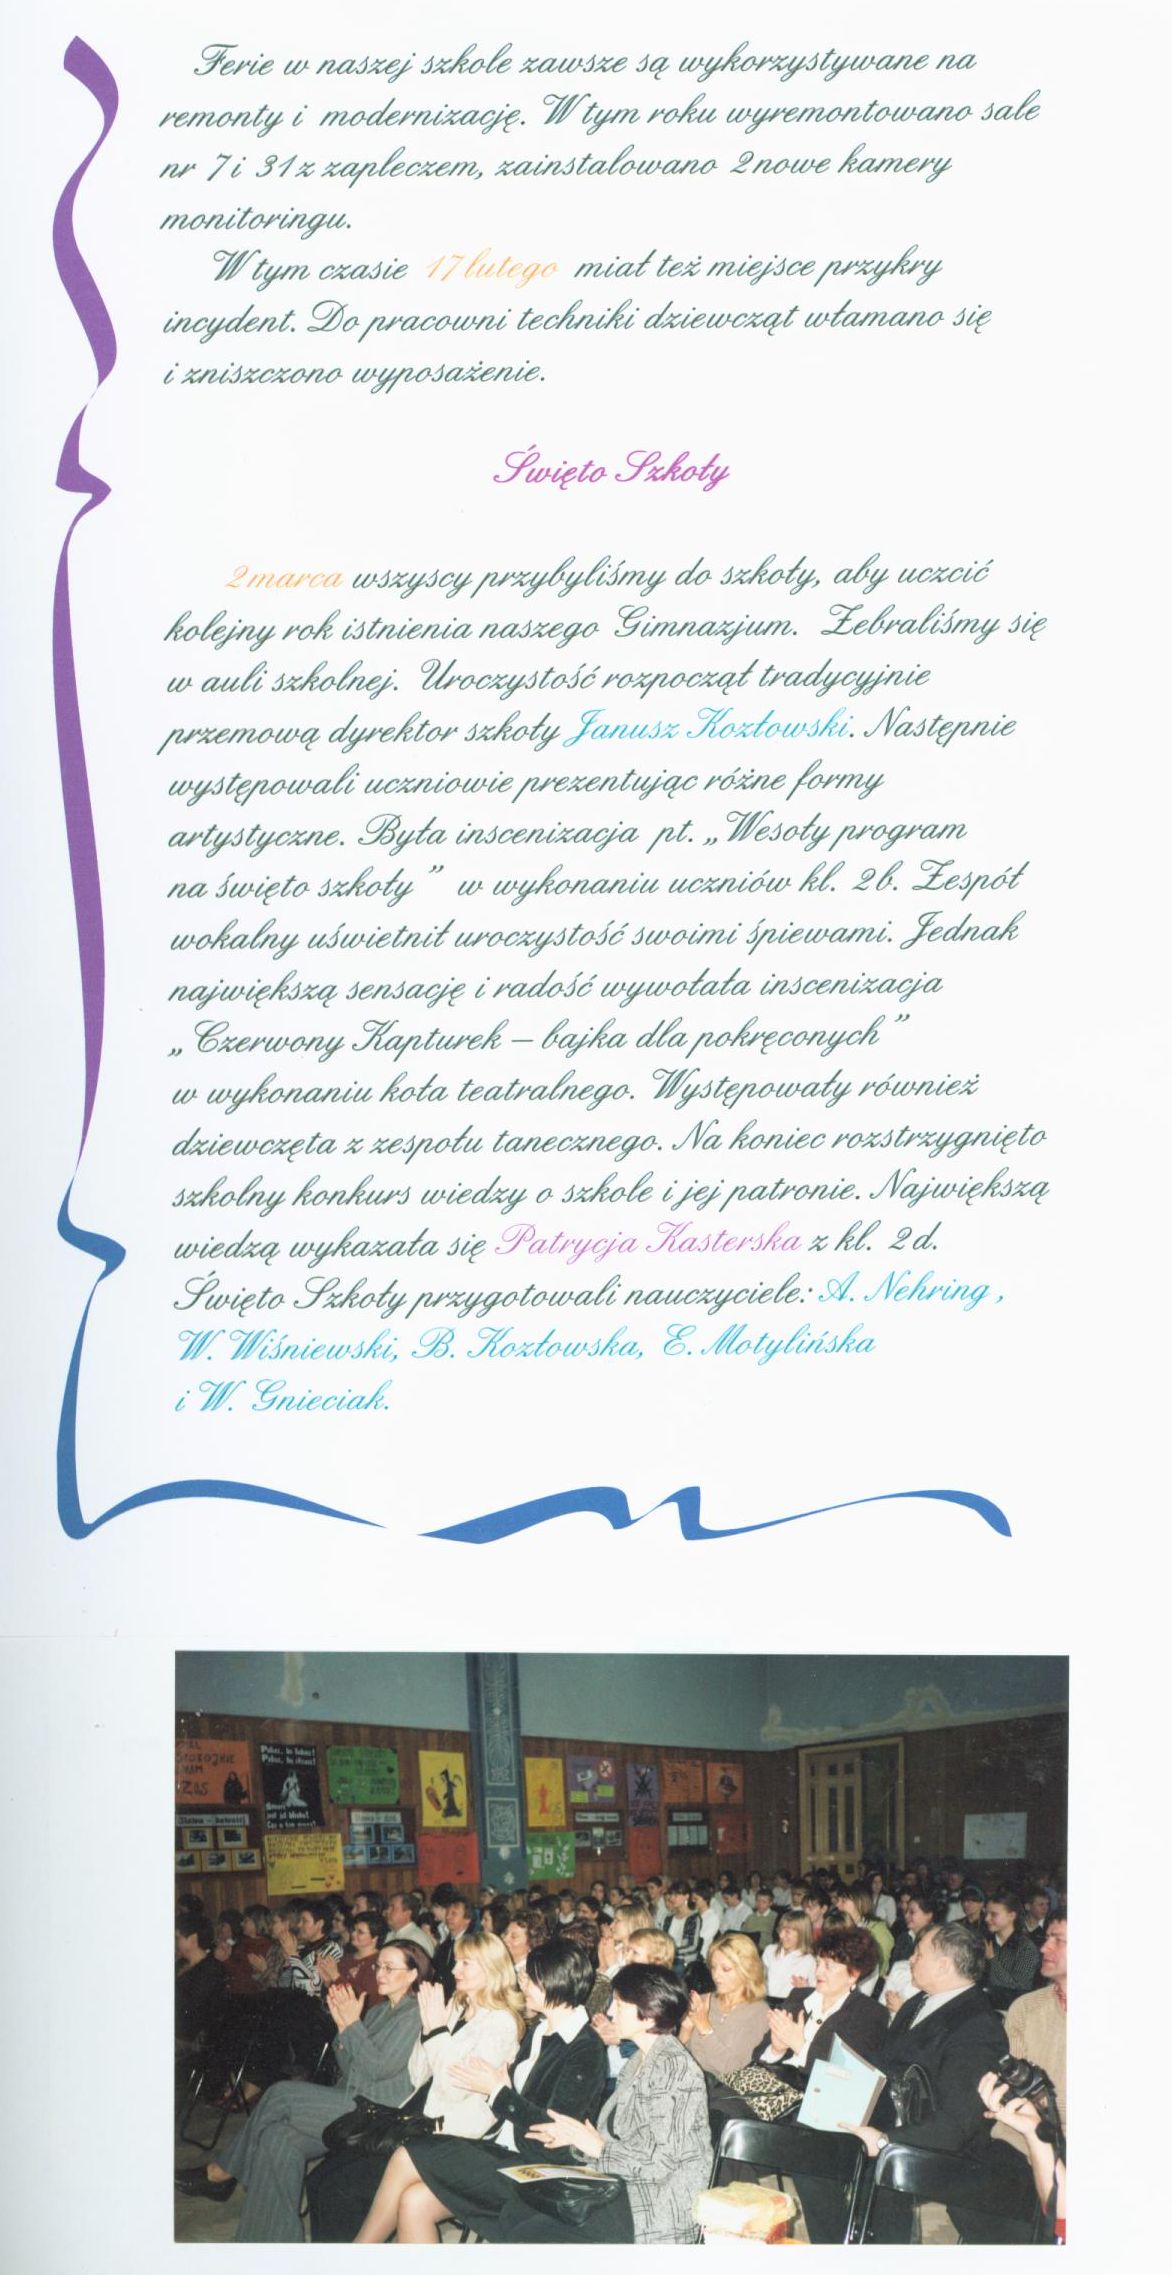 Ferie w naszej szkole zawsze są wykorzystywane na
remonty i modernizację. W tym roku wyremontowano sale
nr 7 i 31 z zapleczem, zainstalowano 2 nowe kamery
monitoringu.
W tym czasie 17 lutego miał też miejsce przykry
incydent. Do pracowni techniki dziewcząt włamano się
i zniszczono wyposażenie.
Święto Szkoły
2 marca wszyscy przybyliśmy do szkoły, aby uczcić
kolejny rok istnienia naszego Gimnazjum. Zebraliśmy się
w auli szkolnej. Uroczystość rozpoczął tradycyjnie
przemową dyrektor szkoły Janusz Kozłowski. Następnie
występowali uczniowie prezentując różne formy
artystyczne. Była inscenizacja pt. „Wesoły program
na święto szkoły ” w wykonaniu uczniów kl. 2b. Zespół
wokalny uświetnił uroczystość swoimi śpiewami. Jednak
największą sensację i radość wywołała inscenizacja
„Czerwony Kapturek – bajka dla pokręconych”
w wykonaniu koła teatralnego. Występowały również
dziewczęta z zespołu tanecznego. Na koniec rozstrzygnięto
szkolny konkurs wiedzy o szkole i jej patronie. Największą
wiedzą wykazała się Patrycja Kasterska z kl. 2d.
Święto Szkoły przygotowali nauczyciele: A. Nehring ,
W. Wiśniewski, B. Kozłowska, E. Motylińska
i W. Gnieciak.